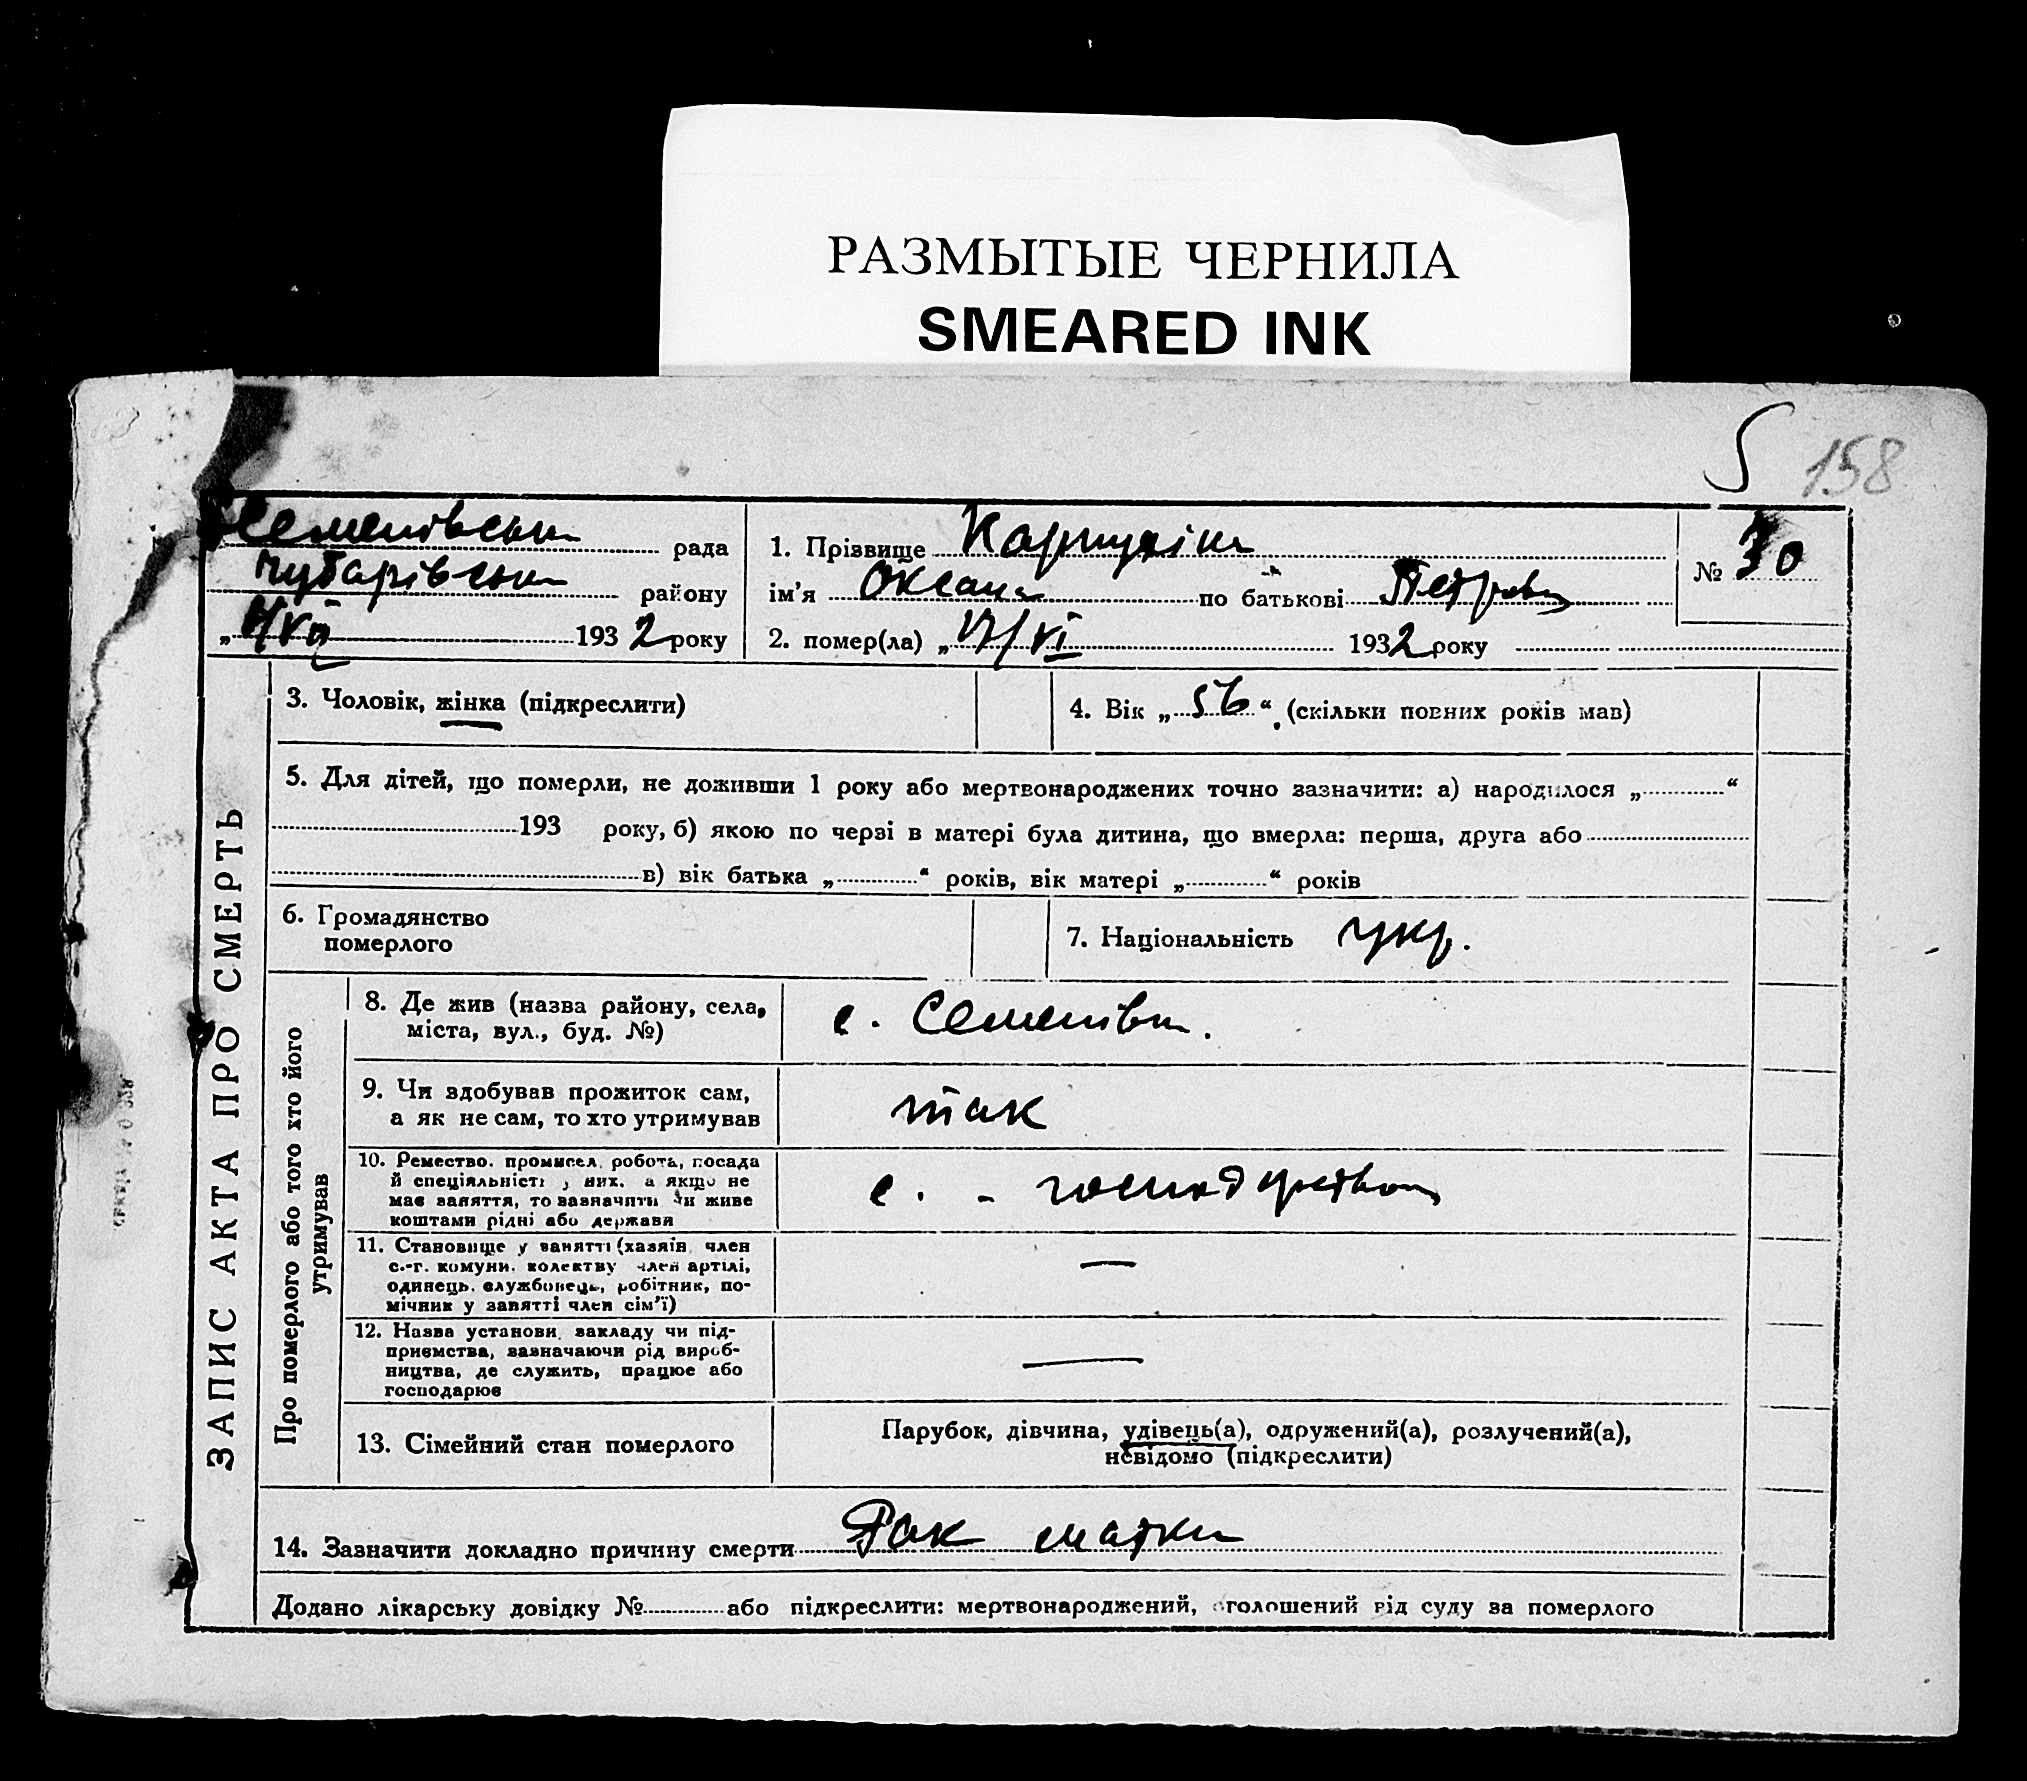 РАЗМЫТЫЕ ЧЕРНИЛА
SMEARED INK
158
Семенівська рада
Чубарівська району
193 2 року
1. Прізвище
ім'я Оксана по батькові Петровна
2. помер(ла) „ 17/VI 1932 року
№ 30
ЗАПИС АКТА ПРО СМЕРТЬ
3. Чоловік, жінка (підкреслити)
4. Вік „ 56 “ (скільки повних років мав)
5. Для дітей, що померли, не доживши 1 року або мертвонароджених точно зазначити: а) народилося „ “
193 року, б) якою по черзі в матері була дитина, що вмерла: перша, друга або
в) вік батька „ “ років, вік матері „ “ років
6. Громадянство
померлого
7. Національність укр.
Про померлого або того хто його
утримував
8. Де жив (назва району, села,
міста, вул., буд. №)
с. Семенівка.
9. Чи здобував прожиток сам,
а як не сам, то хто утримував
так
10. Ремество, промисел, робота, посада
й спеціяльність у них, а якщо не
має заняття, то зазначити чи живе
коштами рідні або держави
с. - господарством
11. Становище у занятті (хазяїн, член
с.-г. комуни, колективу член артілі,
одинець, службовець, робітник, по-
мічник у занятті член сім'ї)
—
12. Назва установи, закладу чи під-
приємства, зазначаючи рід вироб-
ництва, де служить, працює або
господарює
—
13. Сімейний стан померлого
Парубок, дівчина, удівець(а), одружений(а), розлучений(а),
невідомо (підкреслити)
14. Зазначити докладно причину смерти Рак матки
Додано лікарську довідку № або підкреслити: мертвонароджений, оголошений від суду за померлого